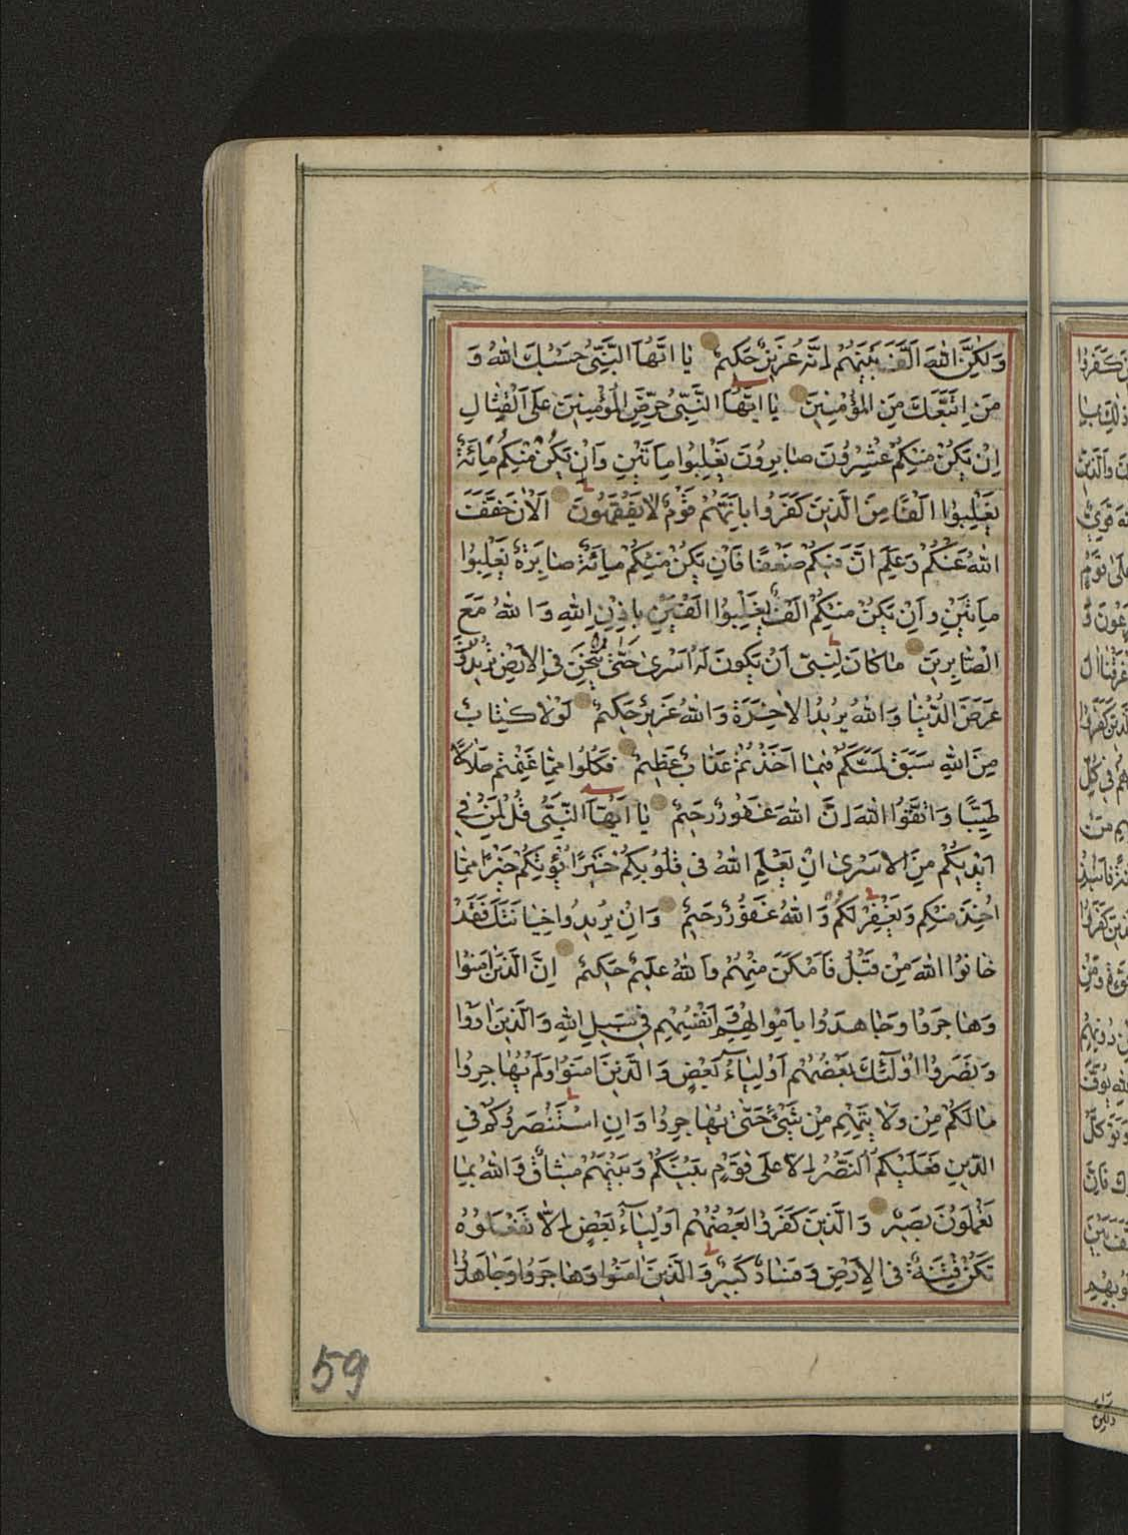 وَلٰكِنَّ اللّٰهَ اَلَّفَ بَيْنَهُمْ اِنَّهُ عَزِيزٌ حَكِيمٌ يٰا اَيُّهَا النَّبِيُّ حَسْبُكَ اللّٰهُ وَ
مَنِ اتَّبَعَكَ مِنَ الْمُؤْمِنِينَ يٰا اَيُّهَا النَّبِيُّ حَرِّضِ الْمُؤْمِنِينَ عَلَى الْقِتٰالِ
اِنْ يَكُنْ مِنْكُمْ عِشْرُونَ صٰابِرُونَ يَغْلِبُوا مِاَتَيْنِ وَاِنْ يَكُنْ مِنْكُمْ مِائَةٌ
يَغْلِبُوا اَلْفًا مِنَ الَّذِينَ كَفَرُوا بِاَنَّهُمْ قَوْمٌ لاٰ يَفْقَهُونَ اَلْاٰنَ خَفَّفَ
اللّٰهُ عَنْكُمْ وَعَلِمَ اَنَّ فِيكُمْ ضَعْفًا فَاِنْ يَكُنْ مِنْكُمْ مِائَةٌ صٰابِرَةٌ يَغْلِبُوا
مِاَتَيْنِ وَاِنْ يَكُنْ مِنْكُمْ اَلْفٌ يَغْلِبُوا اَلْفَيْنِ بِاِذْنِ اللّٰهِ وَاللّٰهُ مَعَ
الصّٰابِرِينَ مٰا كٰانَ لِنَبِيٍّ اَنْ يَكُونَ لَهُ اَسْرىٰ حَتّٰى يُثْخِنَ فِى الْاَرْضِ تُرِيدُونَ
عَرَضَ الدُّنْيٰا وَاللّٰهُ يُرِيدُ الْاٰخِرَةَ وَاللّٰهُ عَزِيزٌ حَكِيمٌ لَوْلاٰ كِتٰابٌ
مِنَ اللّٰهِ سَبَقَ لَمَسَّكُمْ فِيمٰا اَخَذْتُمْ عَذٰابٌ عَظِيمٌ فَكُلُوا مِمّٰا غَنِمْتُمْ حَلاٰلاً
طَيِّبًا وَاتَّقُوا اللّٰهَ اِنَّ اللّٰهَ غَفُورٌ رَحِيمٌ يٰا اَيُّهَا النَّبِيُّ قُلْ لِمَنْ فِي
اَيْدِيكُمْ مِنَ الْاَسْرىٰ اِنْ يَعْلَمِ اللّٰهُ فِي قُلُوبِكُمْ خَيْرًا يُؤْتِكُمْ خَيْرًا مِمّٰا
اُخِذَ مِنْكُمْ وَيَغْفِرْ لَكُمْ وَاللّٰهُ غَفُورٌ رَحِيمٌ وَاِنْ يُرِيدُوا خِيٰانَتَكَ فَقَدْ
خٰانُوا اللّٰهَ مِنْ قَبْلُ فَاَمْكَنَ مِنْهُمْ وَاللّٰهُ عَلِيمٌ حَكِيمٌ اِنَّ الَّذِينَ اٰمَنُوا
وَهٰاجَرُوا وَجٰاهَدُوا بِاَمْوٰالِهِمْ وَاَنْفُسِهِمْ فِي سَبِيلِ اللّٰهِ وَالَّذِينَ اٰوَوْا
وَنَصَرُوا اُولٰئِكَ بَعْضُهُمْ اَوْلِيٰاءُ بَعْضٍ وَالَّذِينَ اٰمَنُوا وَلَمْ يُهٰاجِرُوا
مٰا لَكُمْ مِنْ وَلاٰيَتِهِمْ مِنْ شَيْءٍ حَتّٰى يُهٰاجِرُوا وَاِنِ اسْتَنْصَرُوكُمْ فِي
الدِّينِ فَعَلَيْكُمُ النَّصْرُ اِلاّٰ عَلىٰ قَوْمٍ بَيْنَكُمْ وَبَيْنَهُمْ مِيثٰاقٌ وَاللّٰهُ بِمٰا
تَعْمَلُونَ بَصِيرٌ وَالَّذِينَ كَفَرُوا بَعْضُهُمْ اَوْلِيٰاءُ بَعْضٍ اِلاّٰ تَفْعَلُوهُ
تَكُنْ فِتْنَةٌ فِى الْاَرْضِ وَفَسٰادٌ كَبِيرٌ وَالَّذِينَ اٰمَنُوا وَهٰاجَرُوا وَجٰاهَدُوا
59